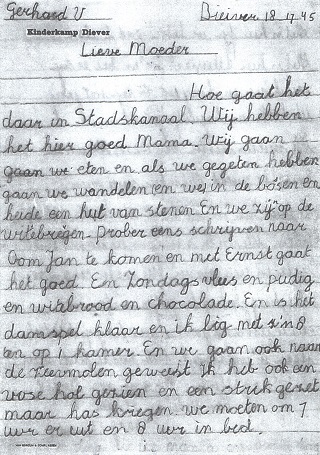 Gerhard V Dieiver 18 17 45
Kinderkamp Diever
Lieve Moeder
Hoe gaat het
daar in Stadskanaal. Wij hebben
het hier goed Mama. Wij gaan
gaan we eten en als we gegeten hebben
gaan we wandelen en in de bosen en
heide een hut van stenen En we zij op de
Prober eens schrijven naar
Oom Jan te komen en met Ernst gaat
het goed. En Zondags vlees en pudig
en witebrood en chocolade. En is het
damspel klaar en ik lig met z'n 8
en op 1 kamer. En we gaan ook naar
de geweest ik heb ook een
hol gezien en een strik gezet
maar has kregen. we moeten om 7
uur er uit en 8 uur in bed.